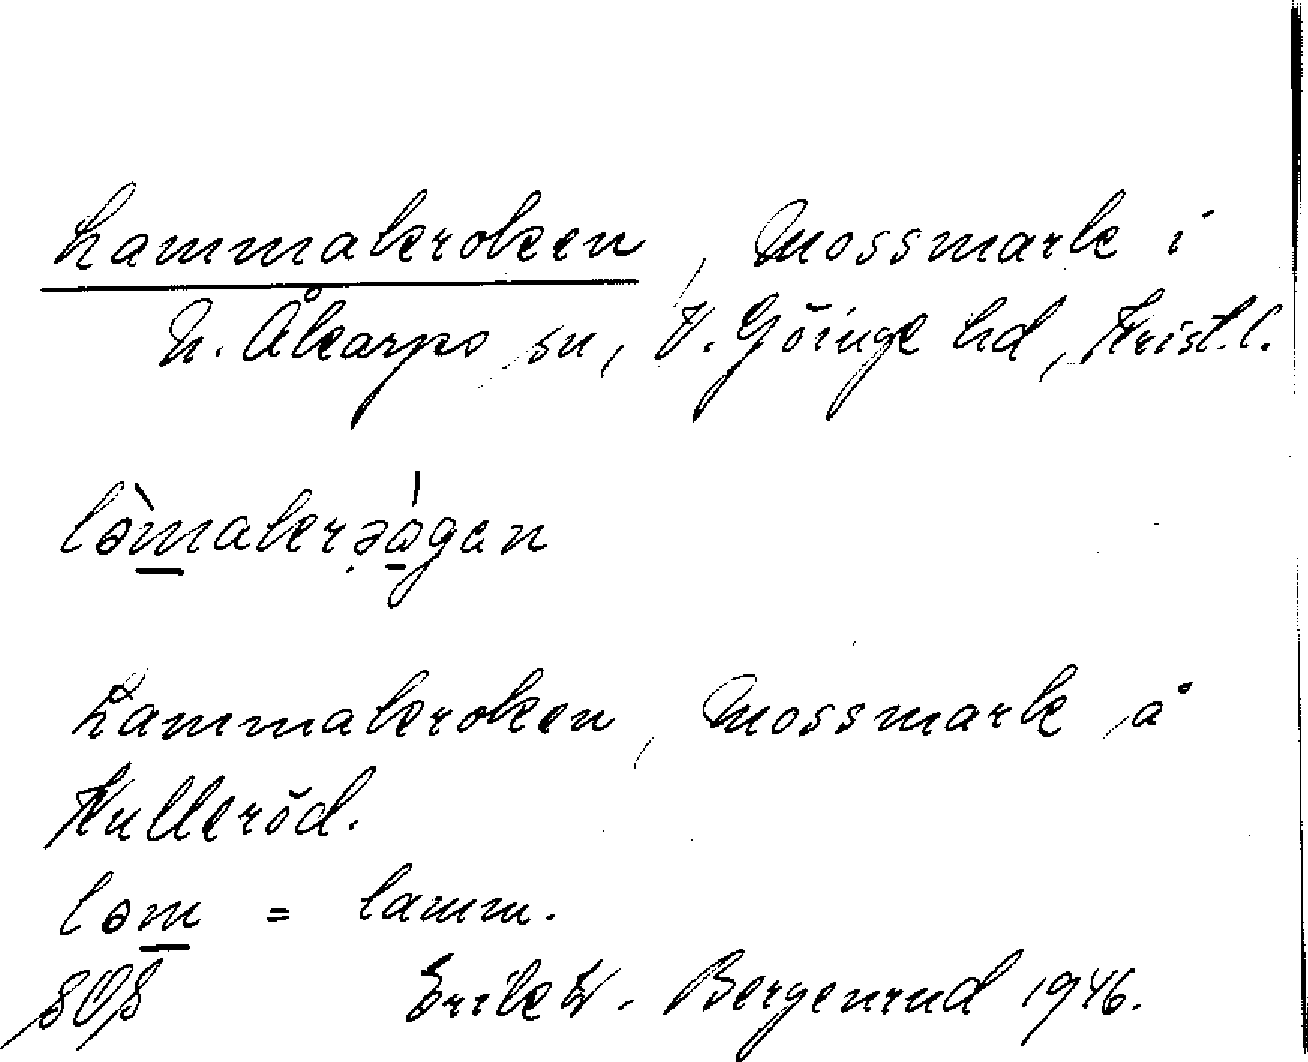 Lammakroken, Mossmark i
N. Åkarps sn, V. Göinge hd, Krist. l.
Lammakroken, Mossmark å
Hulleröd.
ləm = lamm.
Erik W. Bergenrud 1946.